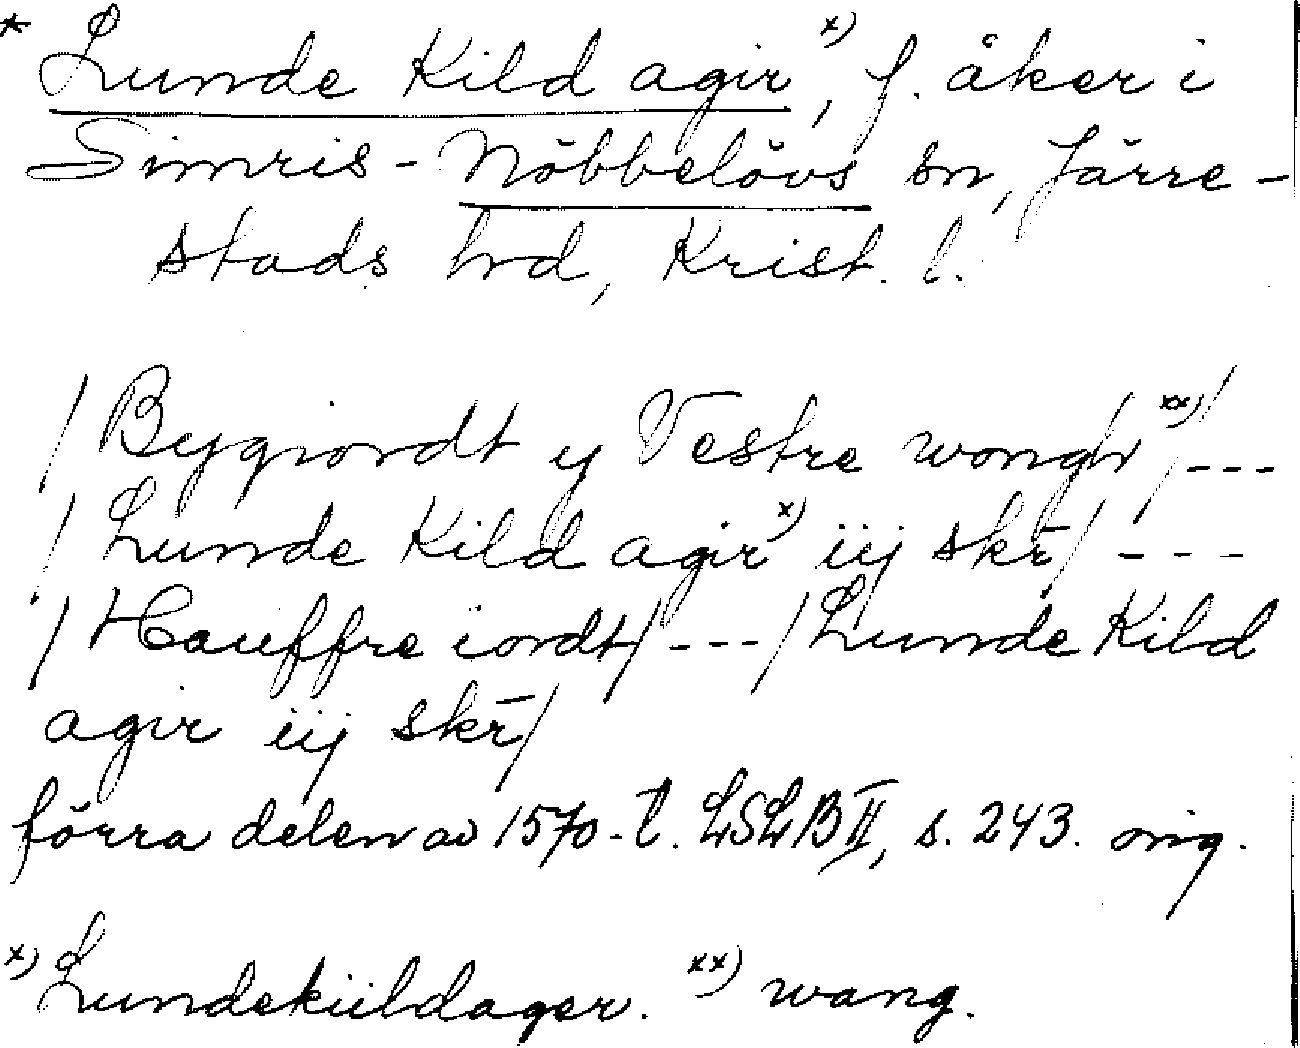 * Lunde Kild agir x), f. åker i
Simris-Nöbbelövs sn, Järre-
stads hrd, Krist. l.
/Bygiordt y Vestre wongh xx)/---
/Lunde Kild agir x) iij skr̄/ ---
/Hauffre iordt/---/Lunde Kild
agir iij skr̄/
förra delen av 1570-t. LSLB II, s. 243. orig.
x) Lundekiildager. xx) wang.